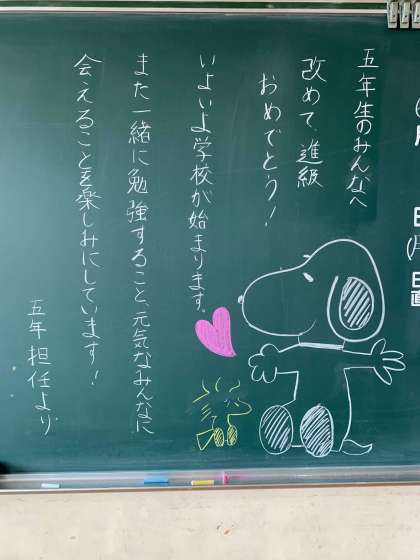 五年生のみんなへ
改めて、進級
おめでとう！
いよいよ学校が始まります。
また一緒に勉強すること、元気なみんなに
会えることを楽しみにしています！
五年担任より
月
日
直